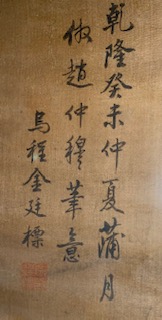 乾隆癸未仲夏蒲月
倣趙仲穆筆意
烏程金廷標